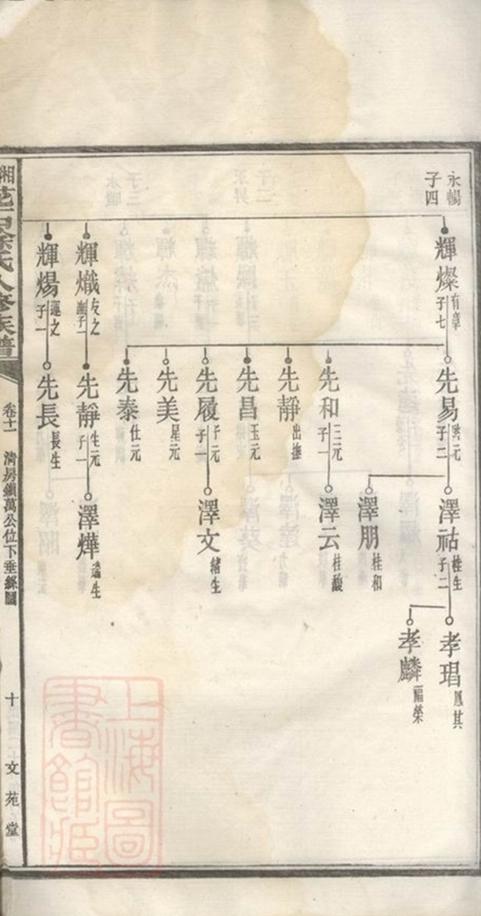 永暢
子四
輝燦
有章
子七
先易
子二
澤祜
桂生
子二
孝琩
鳳其
孝麟
福榮
澤朋
桂和
先和
三元
子一
澤云
桂馥
先靜
出撫
先昌
玉元
先履
子一
澤文
緒生
先美
星元
先泰
仕元
輝熾
友之
先靜
生元
子一
澤燁
輝煬
蓮之
子一
先長
長生
氏八修族譜
卷十一
清房鎖萬公位下垂絲圖
十
文苑堂
上海圖書館藏